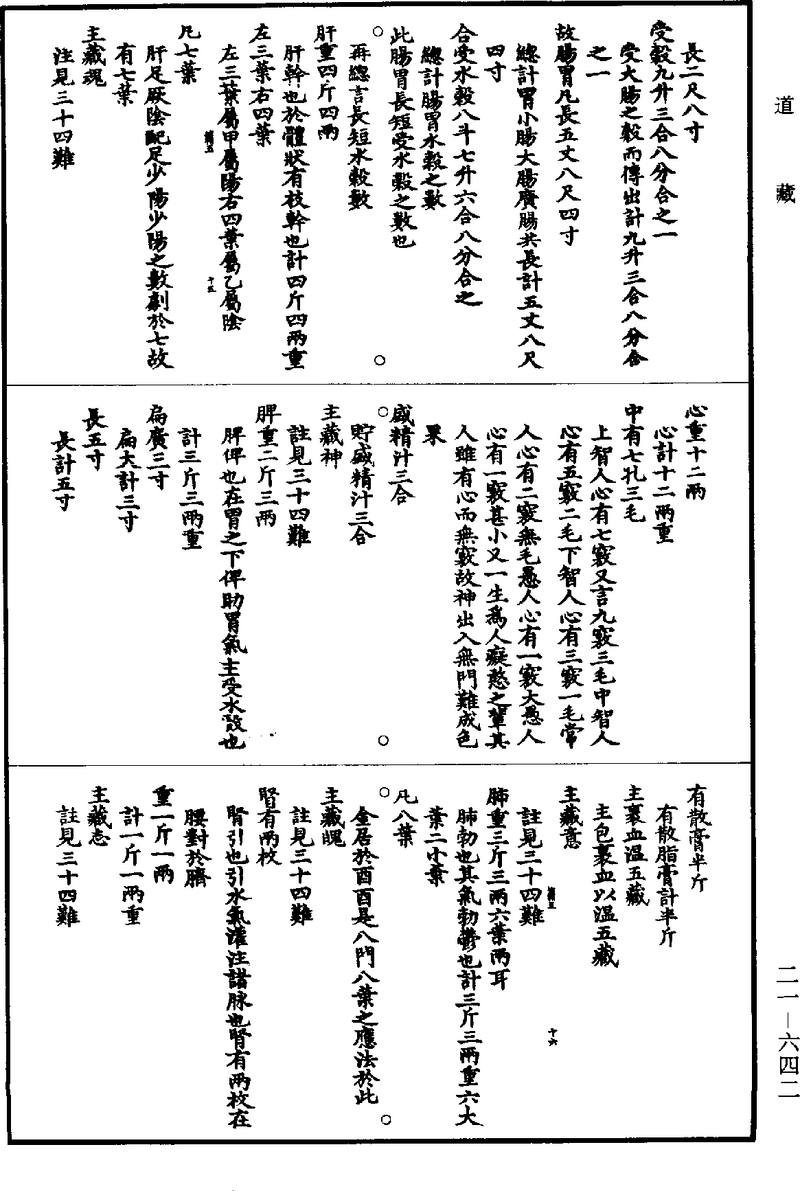 道藏
長二尺八寸
受穀九升三合八分合之一
受大腸之穀而傳出計九升三合八分合
之一
故腸胃凡長五丈八尺四寸
總計胃小腸大腸廣腸共長計五丈八尺
四寸
合受水穀八斗七升六合八分合之
總計腸胃水穀之數
此腸胃長短受水穀之數也
再總言長短水穀數
肝重四斤四兩
肝幹也於體狀有枝幹也計四斤四兩重
左三葉右四葉
左三葉屬甲屬陽右四葉屬乙屬陰
十五
凡七葉
肝足厥陰配足少陽少陽之數劑於七故
有七葉
主藏魂
註見三十四難
心重十二兩
心計十二兩重
中有七孔三毛
上智人心有七竅又言九竅三毛中智人
心有五竅二毛下智人心有三竅一毛常
人心有二竅無毛愚人心有一竅大愚人
心有一竅甚小又一生爲人癡憨之輩其
人雖有心而無竅故神出入無門難成色
果
盛精汁三合
貯盛精汁三合
主藏神
註見三十四難
脾重二斤三兩
脾俾也在胃之下俾助胃氣主受水穀也
計三斤三兩重
扁廣三寸
扁大計三寸
長五寸
長計五寸
有散膏半斤
有散脂膏計半斤
主裹血溫五藏
主包裹血以溫五藏
主藏意
註見三十四難
十六
肺重三斤三兩六葉兩耳
肺勃也其氣勃鬱也計三斤三兩重六大
葉二小葉
凡八葉
金居於酉酉是八門八葉之應法於此
主藏魄
註見三十四難
腎有兩枚
腎引也引水氣灌注諸脉也腎有兩枚在
腰對於臍
重一斤一兩
計一斤一兩重
主藏志
註見三十四難
二一—六四二